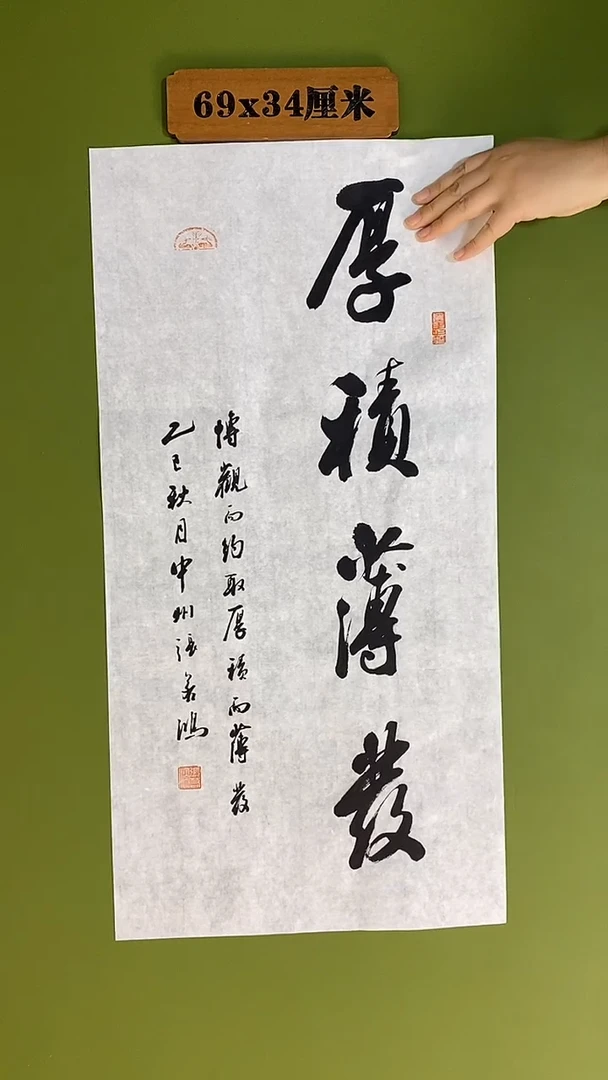 69x34厘米
厚積薄發
博觀而約取厚積而薄發
乙巳秋月中州張若鴻